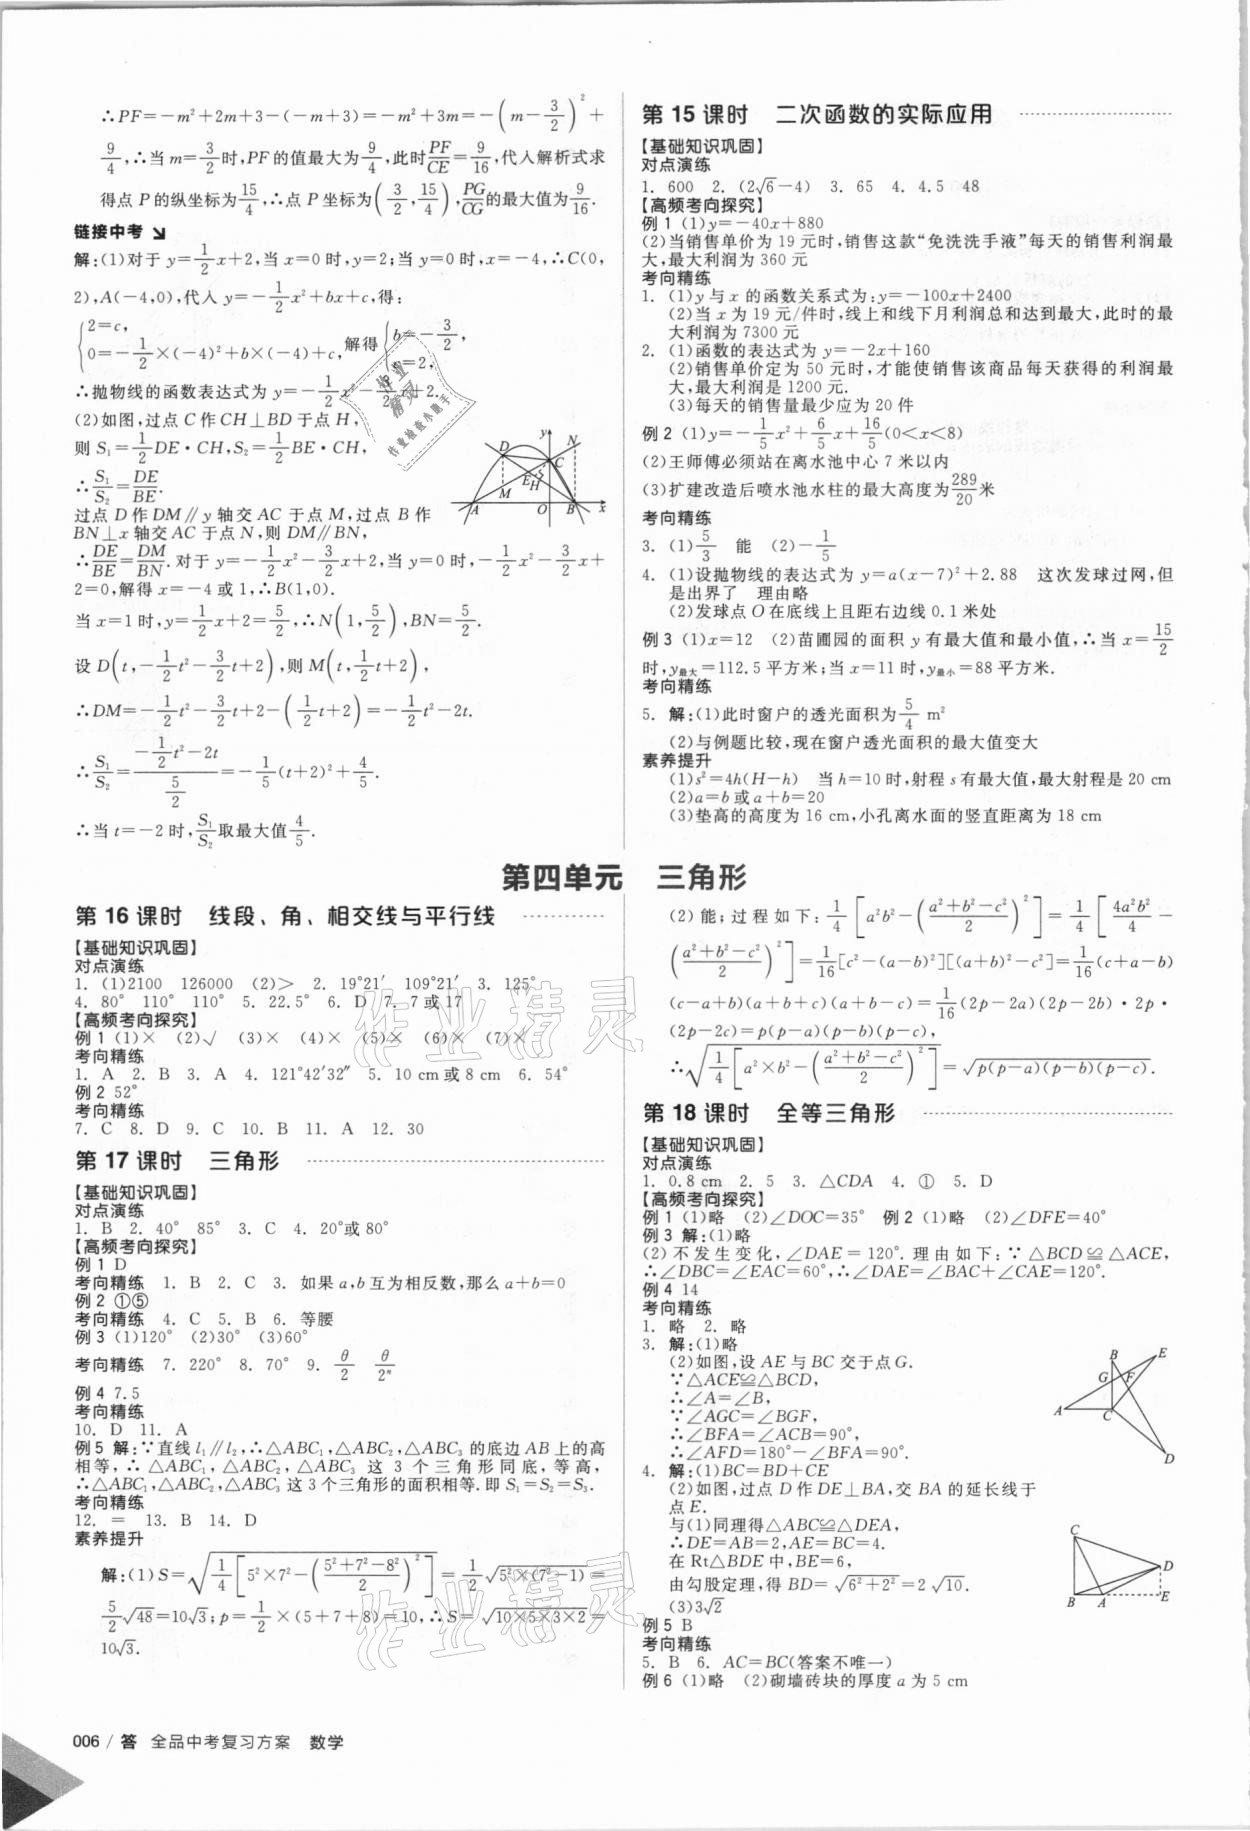 ∴PF=−m²+2m+3−(−m+3)=−m²+3m=−(m−3/2)²+
9/4,∴当 m=3/2时,PF 的值最大为9/4,此时PF/CE=9/16,代入解析式求
得点 P 的纵坐标为15/4,∴点 P 坐标为(3/2,15/4),PG/CG的最大值为9/16.
链接中考
解:(1)对于 y=1/2x+2,当 x=0 时,y=2;当 y=0 时,x=−4,∴C(0,
2),A(−4,0),代入 y=−1/2x²+bx+c,得:
{2=c, 0=−1/2×(−4)²+b×(−4)+c,解得{b=−3/2, c=2,
∴抛物线的函数表达式为 y=−1/2x²−3/2x+2.
(2)如图,过点 C 作 CH⊥BD 于点 H,
则 S₁=1/2DE·CH,S₂=1/2BE·CH,
∴S₁/S₂=DE/BE.
过点 D 作 DM∥y 轴交 AC 于点 M,过点 B 作
BN⊥x 轴交 AC 于点 N,则 DM∥BN,
∴DE/BE=DM/BN.对于 y=−1/2x²−3/2x+2,当 y=0 时,−1/2x²−3/2x+
2=0,解得 x=−4 或 1,∴B(1,0).
当 x=1 时,y=1/2x+2=5/2,∴N(1,5/2),BN=5/2.
设 D(t,−1/2t²−3/2t+2),则 M(t,1/2t+2),
∴DM=−1/2t²−3/2t+2−(1/2t+2)=−1/2t²−2t.
∴S₁/S₂=(−1/2t²−2t)/(5/2)=−1/5(t+2)²+4/5.
∴当 t=−2 时,S₁/S₂取最大值4/5.
y
D
N
C
E
H
M
A
O
B
x
第 15 课时 二次函数的实际应用
【基础知识巩固】
对点演练
1. 600 2. (2√6−4) 3. 65 4. 4.5 48
【高频考向探究】
例 1 (1)y=−40x+880
(2)当销售单价为 19 元时,销售这款“免洗洗手液”每天的销售利润最
大,最大利润为 360 元
考向精练
1. (1)y 与 x 的函数关系式为:y=−100x+2400
(2)当 x 为 19 元/件时,线上和线下月利润总和达到最大,此时的最
大利润为 7300 元
2. (1)函数的表达式为 y=−2x+160
(2)销售单价定为 50 元时,才能使销售该商品每天获得的利润最
大,最大利润是 1200 元.
(3)每天的销售量最少应为 20 件
例 2 (1)y=−1/5x²+6/5x+16/5(0<x<8)
(2)王师傅必须站在离水池中心 7 米以内
(3)扩建改造后喷水池水柱的最大高度为289/20米
考向精练
3. (1)5/3 能 (2)−1/5
4. (1)设抛物线的表达式为 y=a(x−7)²+2.88 这次发球过网,但
是出界了 理由略
(2)发球点 O 在底线上且距右边线 0.1 米处
例 3 (1)x=12 (2)苗圃园的面积 y 有最大值和最小值,∴当 x=15/2
时,y最大=112.5 平方米;当 x=11 时,y最小=88 平方米.
考向精练
5. 解:(1)此时窗户的透光面积为5/4 m²
(2)与例题比较,现在窗户透光面积的最大值变大
素养提升
(1)s²=4h(H−h) 当 h=10 时,射程 s 有最大值,最大射程是 20 cm
(2)a=b 或 a+b=20
(3)垫高的高度为 16 cm,小孔离水面的竖直距离为 18 cm
第四单元 三角形
第 16 课时 线段、角、相交线与平行线
【基础知识巩固】
对点演练
1. (1)2100 126000 (2)> 2. 19°21′ 109°21′ 3. 125°
4. 80° 110° 110° 5. 22.5° 6. D 7. 7 或 17
【高频考向探究】
例 1 (1)× (2)√ (3)× (4)× (5)× (6)× (7)×
考向精练
1. A 2. B 3. A 4. 121°42′32″ 5. 10 cm 或 8 cm 6. 54°
例 2 52°
考向精练
7. C 8. D 9. C 10. B 11. A 12. 30
第 17 课时 三角形
【基础知识巩固】
对点演练
1. B 2. 40° 85° 3. C 4. 20°或 80°
【高频考向探究】
例 1 D
考向精练 1. B 2. C 3. 如果 a,b 互为相反数,那么 a+b=0
例 2 ①⑤
考向精练 4. C 5. B 6. 等腰
例 3 (1)120° (2)30° (3)60°
考向精练 7. 220° 8. 70° 9. θ/2 θ/2ⁿ
例 4 7.5
考向精练
10. D 11. A
例 5 解:∵直线 l₁∥l₂,∴△ABC₁,△ABC₂,△ABC₃ 的底边 AB 上的高
相等,∴△ABC₁,△ABC₂,△ABC₃ 这 3 个三角形同底,等高,
∴△ABC₁,△ABC₂,△ABC₃ 这 3 个三角形的面积相等.即 S₁=S₂=S₃.
考向精练
12. = 13. B 14. D
素养提升
解:(1)S=√(1/4[5²×7²−((5²+7²−8²)/2)²])=1/2√(5²×(7²−1))=
5/2√48=10√3;p=1/2×(5+7+8)=10,∴S=√(10×5×3×2)=
10√3.
(2)能;过程如下:1/4[a²b²−((a²+b²−c²)/2)²]=1/4[4a²b²/4−
((a²+b²−c²)/2)²]=1/16[c²−(a−b)²][(a+b)²−c²]=1/16(c+a−b)
(c−a+b)(a+b+c)(a+b−c)=1/16(2p−2a)(2p−2b)·2p·
(2p−2c)=p(p−a)(p−b)(p−c),
∴√(1/4[a²×b²−((a²+b²−c²)/2)²])=√(p(p−a)(p−b)(p−c)).
第 18 课时 全等三角形
【基础知识巩固】
对点演练
1. 0.8 cm 2. 5 3. △CDA 4. ① 5. D
【高频考向探究】
例 1 (1)略 (2)∠DOC=35° 例 2 (1)略 (2)∠DFE=40°
例 3 解:(1)略
(2)不发生变化,∠DAE=120°. 理由如下:∵△BCD≌△ACE,
∴∠DBC=∠EAC=60°,∴∠DAE=∠BAC+∠CAE=120°.
例 4 14
考向精练
1. 略 2. 略
3. 解:(1)略
(2)如图,设 AE 与 BC 交于点 G.
∵△ACE≌△BCD,
∴∠A=∠B,
∵∠AGC=∠BGF,
∴∠BFA=∠ACB=90°,
∴∠AFD=180°−∠BFA=90°.
B
E
G
F
A
C
D
4. 解:(1)BC=BD+CE
(2)如图,过点 D 作 DE⊥BA,交 BA 的延长线于
点 E.
与(1)同理得△ABC≌△DEA,
∴DE=AB=2,AE=BC=4.
在 Rt△BDE 中,BE=6,
由勾股定理,得 BD=√(6²+2²)=2√10.
(3)3√2
C
D
B
A
E
例 5 B
考向精练
5. B 6. AC=BC(答案不唯一)
例 6 (1)略 (2)砌墙砖块的厚度 a 为 5 cm
006 / 答 全品中考复习方案 数学
作业精灵
作业检查小助手
作业精灵
作业精灵